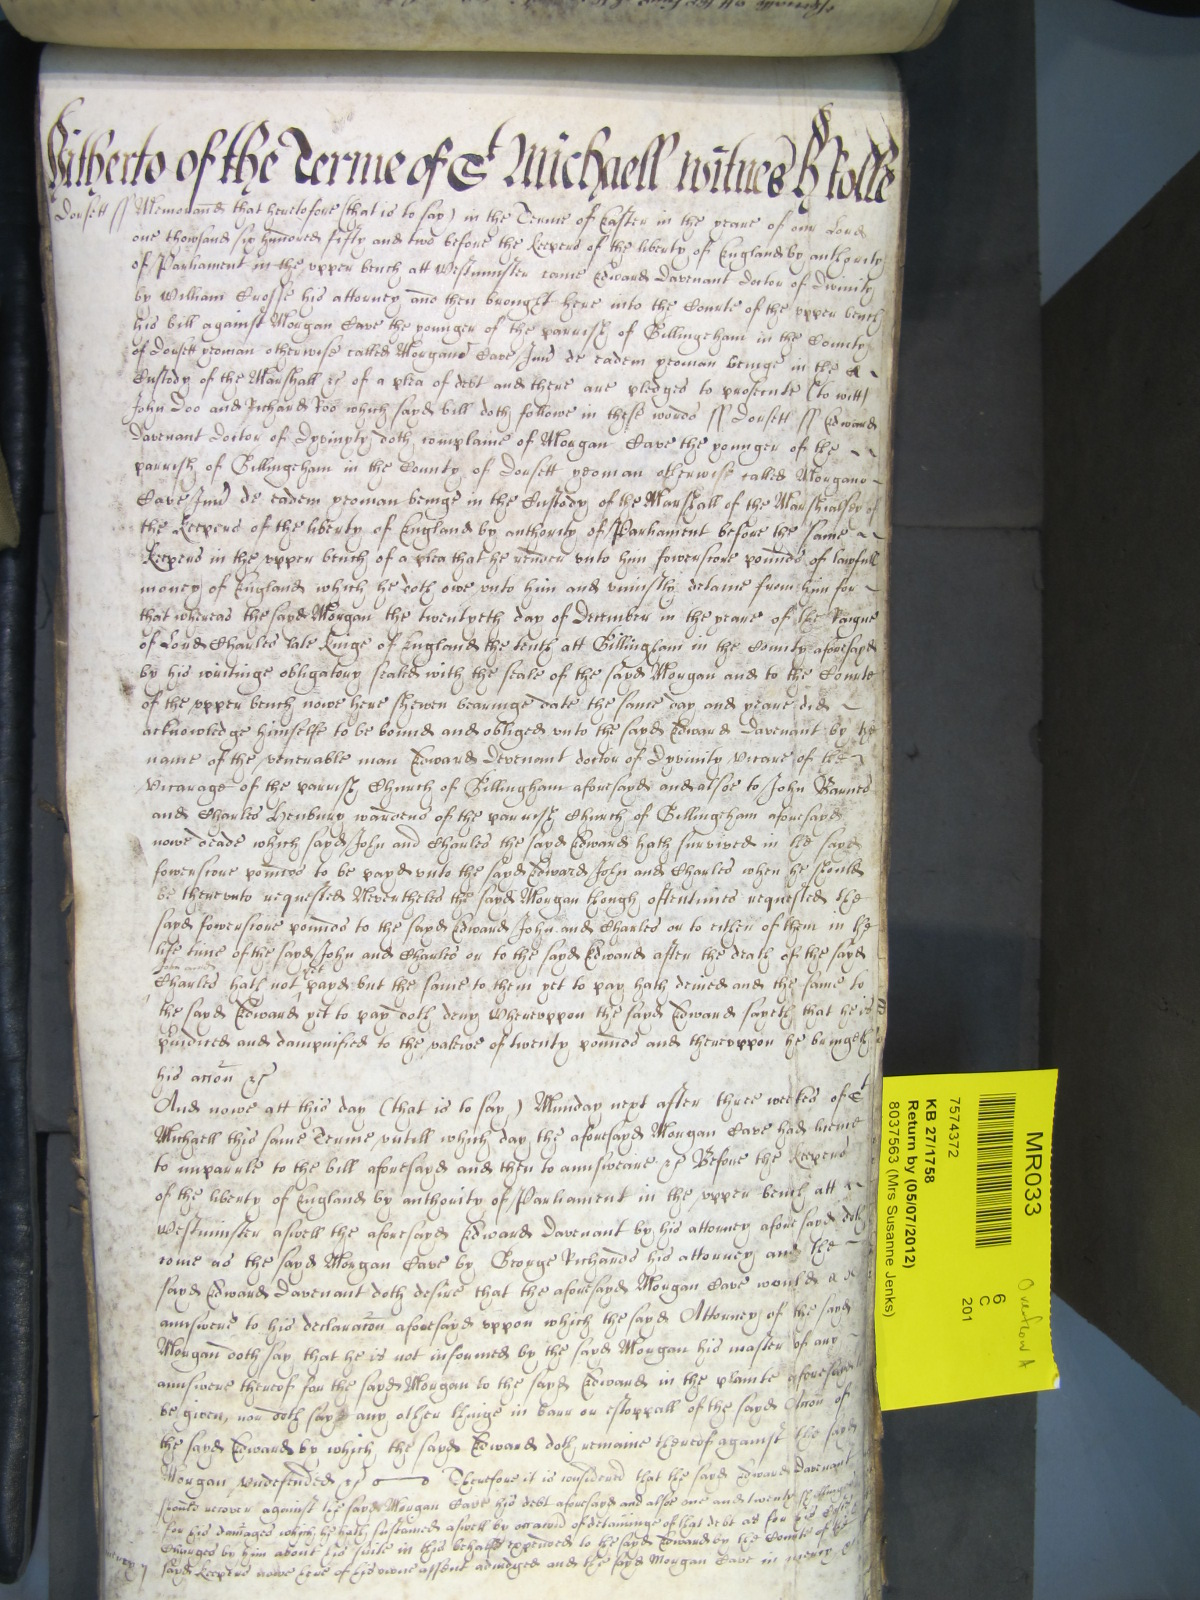 Hitherto of the Terme of St Michaell witnes H Rolle
Dorsett ss Memorand that heretofore (that is to say) in the Terme of Easter in the yeare of our Lord
one thowsand six hundred fifty and two before the keepers of the liberty of England by authority
of Parliament in the vpper bench att Westminster came Edward Davenant doctor of divinity
by William Crosse his attorney and then brought here into the Courte of the vpper bench
his bill against Morgan Cave the younger of the parrish of Gillingeham in the County
of Dorsett yeoman otherwise called Morgand Cave Jun de eadem yeoman beinge in the
Custody of the Marshall &c of a plea of debt and there are pledges to prosecute (to witt)
John Doo and Richard Roo which sayd bill doth followe in these words ss Dorsett ss Edward
Davenant doctor of dyvinyty doth complaine of Morgan Cave the younger of the
parrish of Gillingeham in the County of Dorsett yeoman otherwise called Morgand
Cave Jun de eadem yeoman beinge in the Custody of the Marshall of the Marshialsey of
the keepers of the liberty of England by authority of Parliament before the same
keepers in the vpper bench of a plea that he render vnto him fowerscore pounds of lawfull
money of England which he doth owe vnto him and vniustly detaine from him for
that whereas the sayd Morgan the twentyeth day of December in the yeare of the Raigne
of Lord Charles late Kinge of England the tenth att Gillingham in the County aforesayd
by his writinge obligatory sealed with the seale of the sayd Morgan and to the Courte
of the vpper bench nowe here shewen bearinge date the same day and yeare did
acknowledge himselfe to be bound and obliged vnto the sayd Edward Davenant by the
name of the venerable man Edward Devenant doctor of Dyvinity vicare of the
vicarage of the parrish Church of Gillingham aforesayd and alsoe to John Barnes
and Charles Henbury wardens of the parrish Church of Gillingeham aforesayd
nowe deade which sayd John and Charles the sayd Edward hath survived in the sayd
fowerscore pounds to be payd vnto the sayd Edward John and Charles when he should
be therevnto requested Neverthelesse the sayd Morgan though oftentimes requested the
sayd fowerscore pounds to the sayd Edward John and Charles or to either of them in the
life time of the sayd John and Charles or to the sayd Edward after the death of the sayd
John and
Charles hath not yet payd but the same to them yet to pay hath denied and the same to
the sayd Edward yet to pay doth deny Wherevppon the sayd Edward sayeth that he is
Iniured and dampnified to the valewe of twenty pounds and therevppon he bringeth
his accon &c
And nowe att this day (that is to say) Munday next after three weekes of St
Michaell this same Terme vntill which day the aforesayd Morgan Cave had licence
to imparle to the bill aforesayd and then to answeare &c Before the keepers
of the liberty of England by authority of Parliament in the vpper bench att
Westminster aswell the aforesayd Edward Davenant by his attorney aforesayd doth
come as the sayd Morgan Cave by George Richards his attorney and the
sayd Edward Davenant doth desire that the aforesayd Morgan Cave would
answere to his declaracon aforesayd vppon which the sayd Attorney of the sayd
Morgan doth say that he is not informed by the sayd Morgan his master of any
answere thereof for the sayd Morgan to the sayd Edward in the plainte aforesayd
be given, nor doth say any other thinge in barr or estoppall of the sayd Accon of
the sayd Edward by which the sayd Edward doth remaine thereof against the sayd
Morgan vndefended &c Therefore it is considered that the sayd Edward Davenant
should recover against the sayd Morgan Cave his debt aforesayd and alsoe one and twenty shillings
for his damages which he hath susteined aswell by occasion of detaininge of that debt as for his Costs
Charges by him about his suite in this behalfe expended to the sayd Edward by the Courte of the
sayd keepers nowe here of his owne assent adiudged and the sayd Morgan Cave in mercy &c
mercy
MR033
7574372
KB 27/1758
Return by (05/07/2012)
8037563 (Mrs Susanne Jenks)
6
C
201
Overflow A